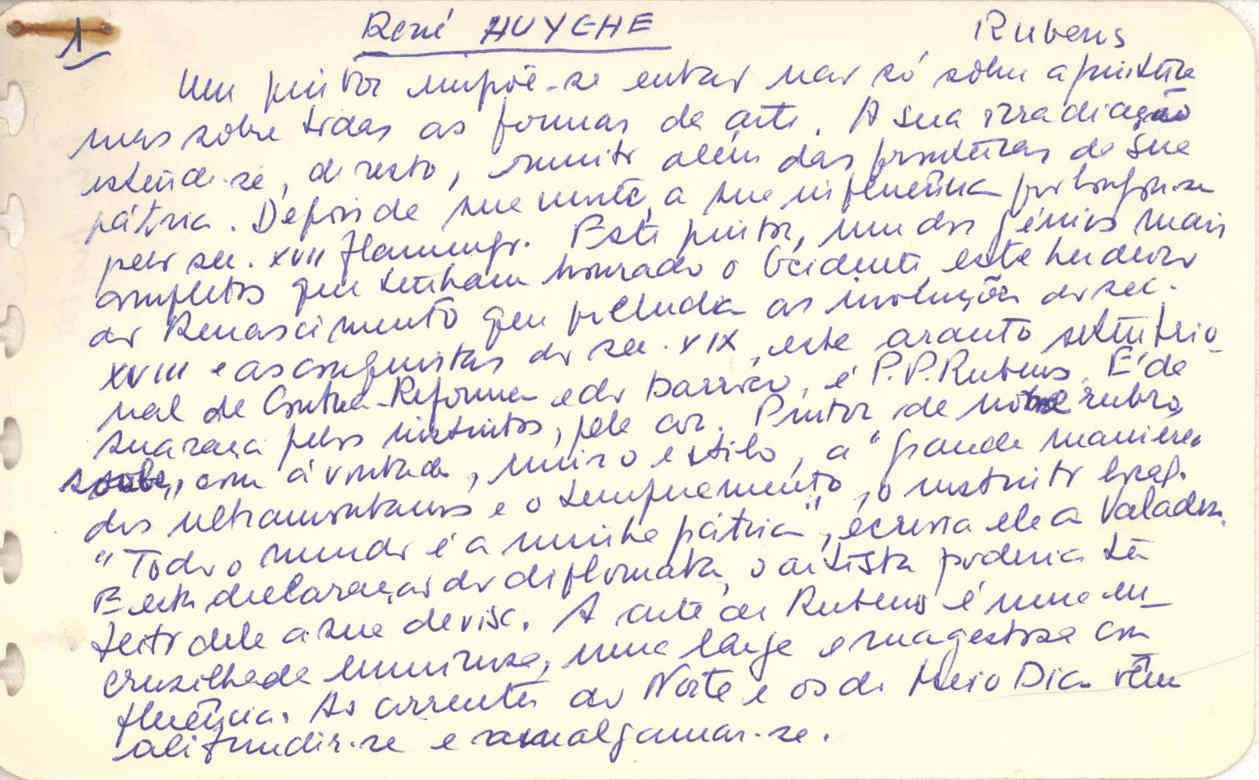 1 René HUYGHE Rubens
Um pintor impõe-se entar nar só sôbre a pintura
mas sôbre tôdas as formas de arte. A sua irradiação
estende-se, de resto, muito além das fronteiras da sua
pátria. Depois de sua morte, a sua influência prolonga-se
pelo séc. XVII flamengo. Este pintor, um dos génios mais
completos que tenham honrado o Ocidente, este herdeiro
do Renascimento que preludia as involuções do séc.
XVIII e as conquistas do séc. XIX, este arauto setentrio-
nal da Contra-Reforma e do barroco, é P. P. Rubens. É de
sua raça pelos instintos, pela cor. Pintor de rubro,
com à vontade, uniu o estilo, a "grande maniera"
dos ultramontanos e o temperamento, o instinto local.
"Todo o mundo é a minha pátria", escrevia ele a Valadés.
E esta declaração do diplomata, o artista poderia ter
feito dela a sua devisa. A arte de Rubens é uma en-
cruzilhada luminosa, uma larga e magestosa con
fluência. As correntes do Norte e os do Meio Dia vêm
ali fundir-se e amalgamar-se.